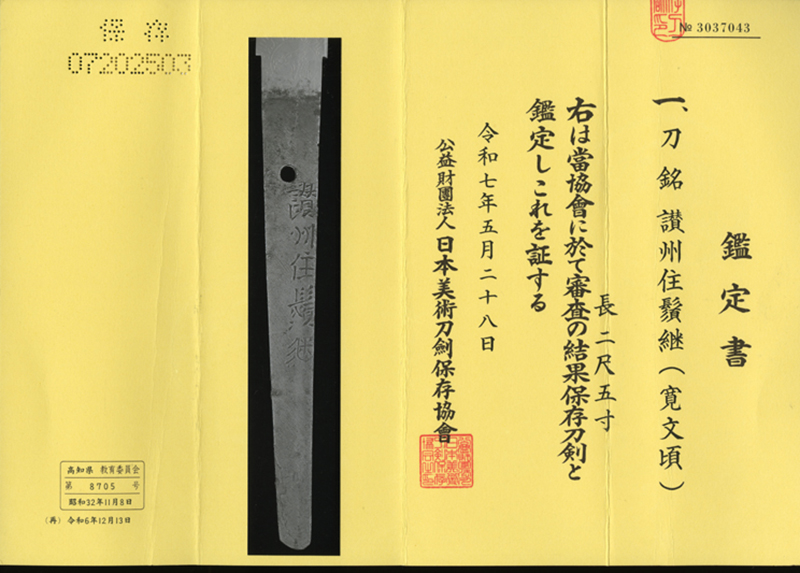 № 3037043
鑑定書
一、刀 銘 讃州住鬚継(寛文頃)
長二尺五寸
右は當協會に於て審査の結果保存刀剣と
鑑定しこれを証する
令和七年五月二十八日
公益財團法人 日本美術刀劍保存協會
讃州住鬚継
保存
07202503
高知県 教育委員会
第 8705 号
昭和32年11月8日
(再) 令和6年12月13日